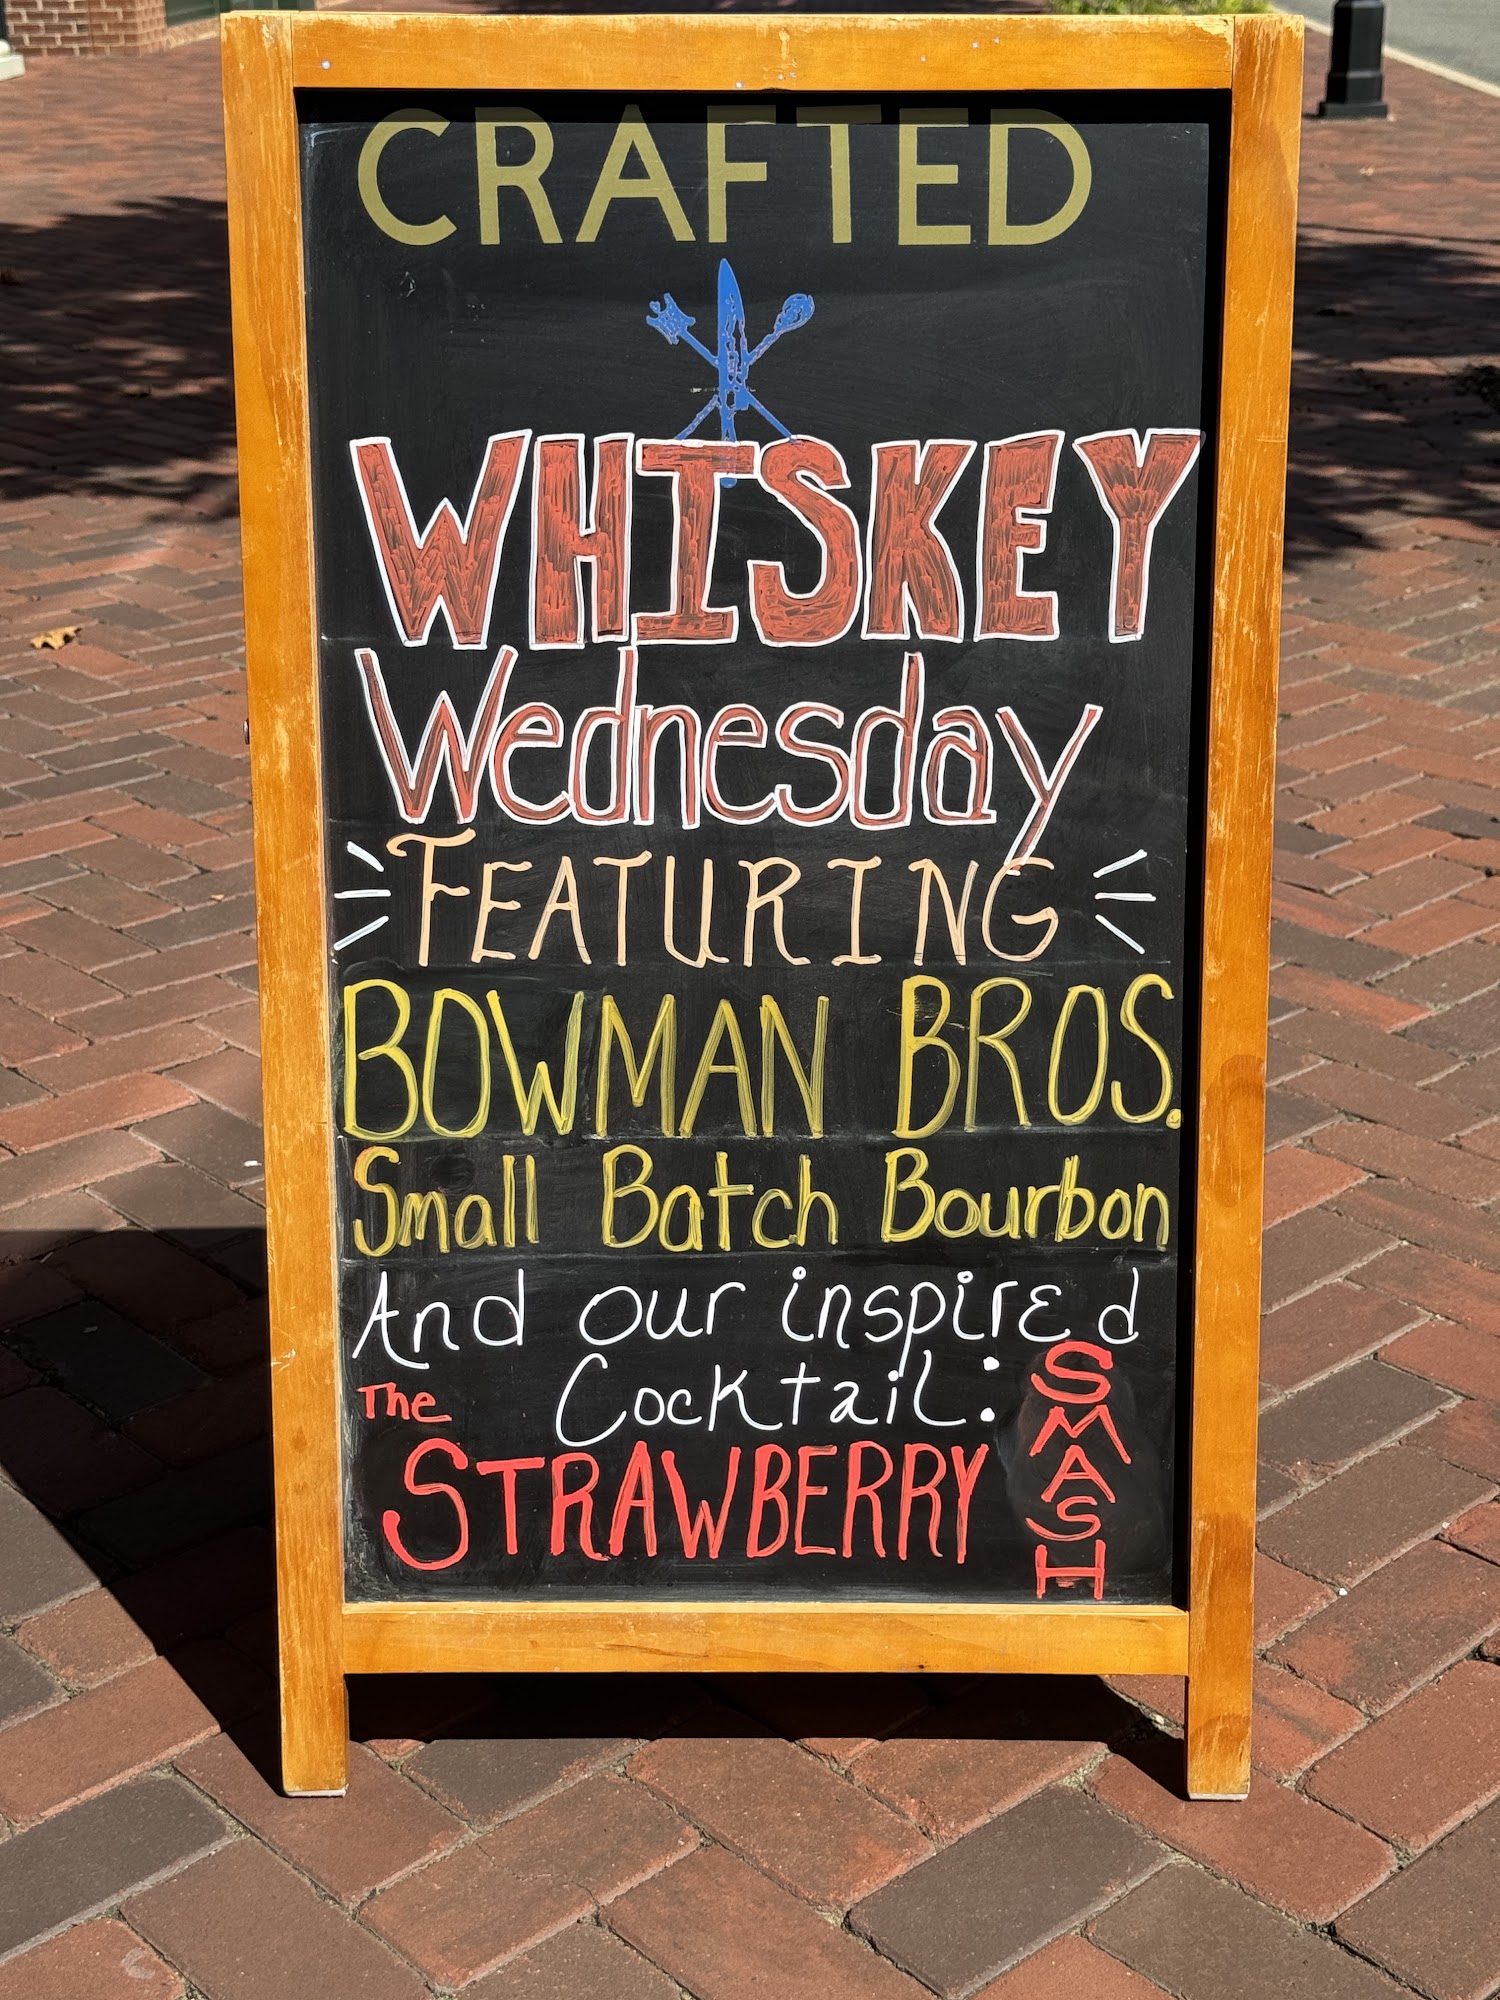 CRAFTED
WHISKEY
Wednesday
FEATURING
BOWMAN BROS.
Small Batch Bourbon
And our inspired
Cocktail:
The
STRAWBERRY
SMASH